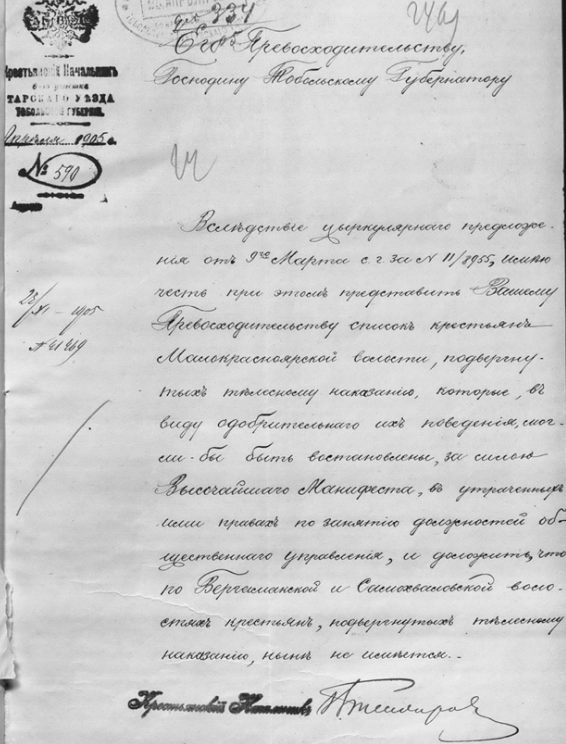 334
Его Превосходительству,
Господину Тобольскому Губернатору
Крестьянскій Начальникъ
участка
ТАРСКАГО УѢЗДА
ТОБОЛЬСКОЙ ГУБЕРНІИ,
Апрѣля 1905 г.
№ 590
Вслѣдствіе цыркулярнаго предложе-
нія отъ 9го Марта с. г. за N 11/8955, имѣю
честь при этомъ представить Вашему
Превосходительству списокъ крестьянъ
Малокрасноярской волости, подвергну-
тыхъ тѣлесному наказанію, которые, въ
виду одобрительнаго ихъ поведенія, мог-
ли-бы быть востановлены, за силою
Высочайшаго Манифеста, въ утраченныхъ
ими правахъ по занятію должностей об-
щественнаго управленія, и доложить, что
по Бергаманской и Самохваловской воло-
стямъ крестьянъ, подвергнутыхъ тѣлесному
наказанію, нынѣ не имѣется.
Крестьянскій Начальникъ